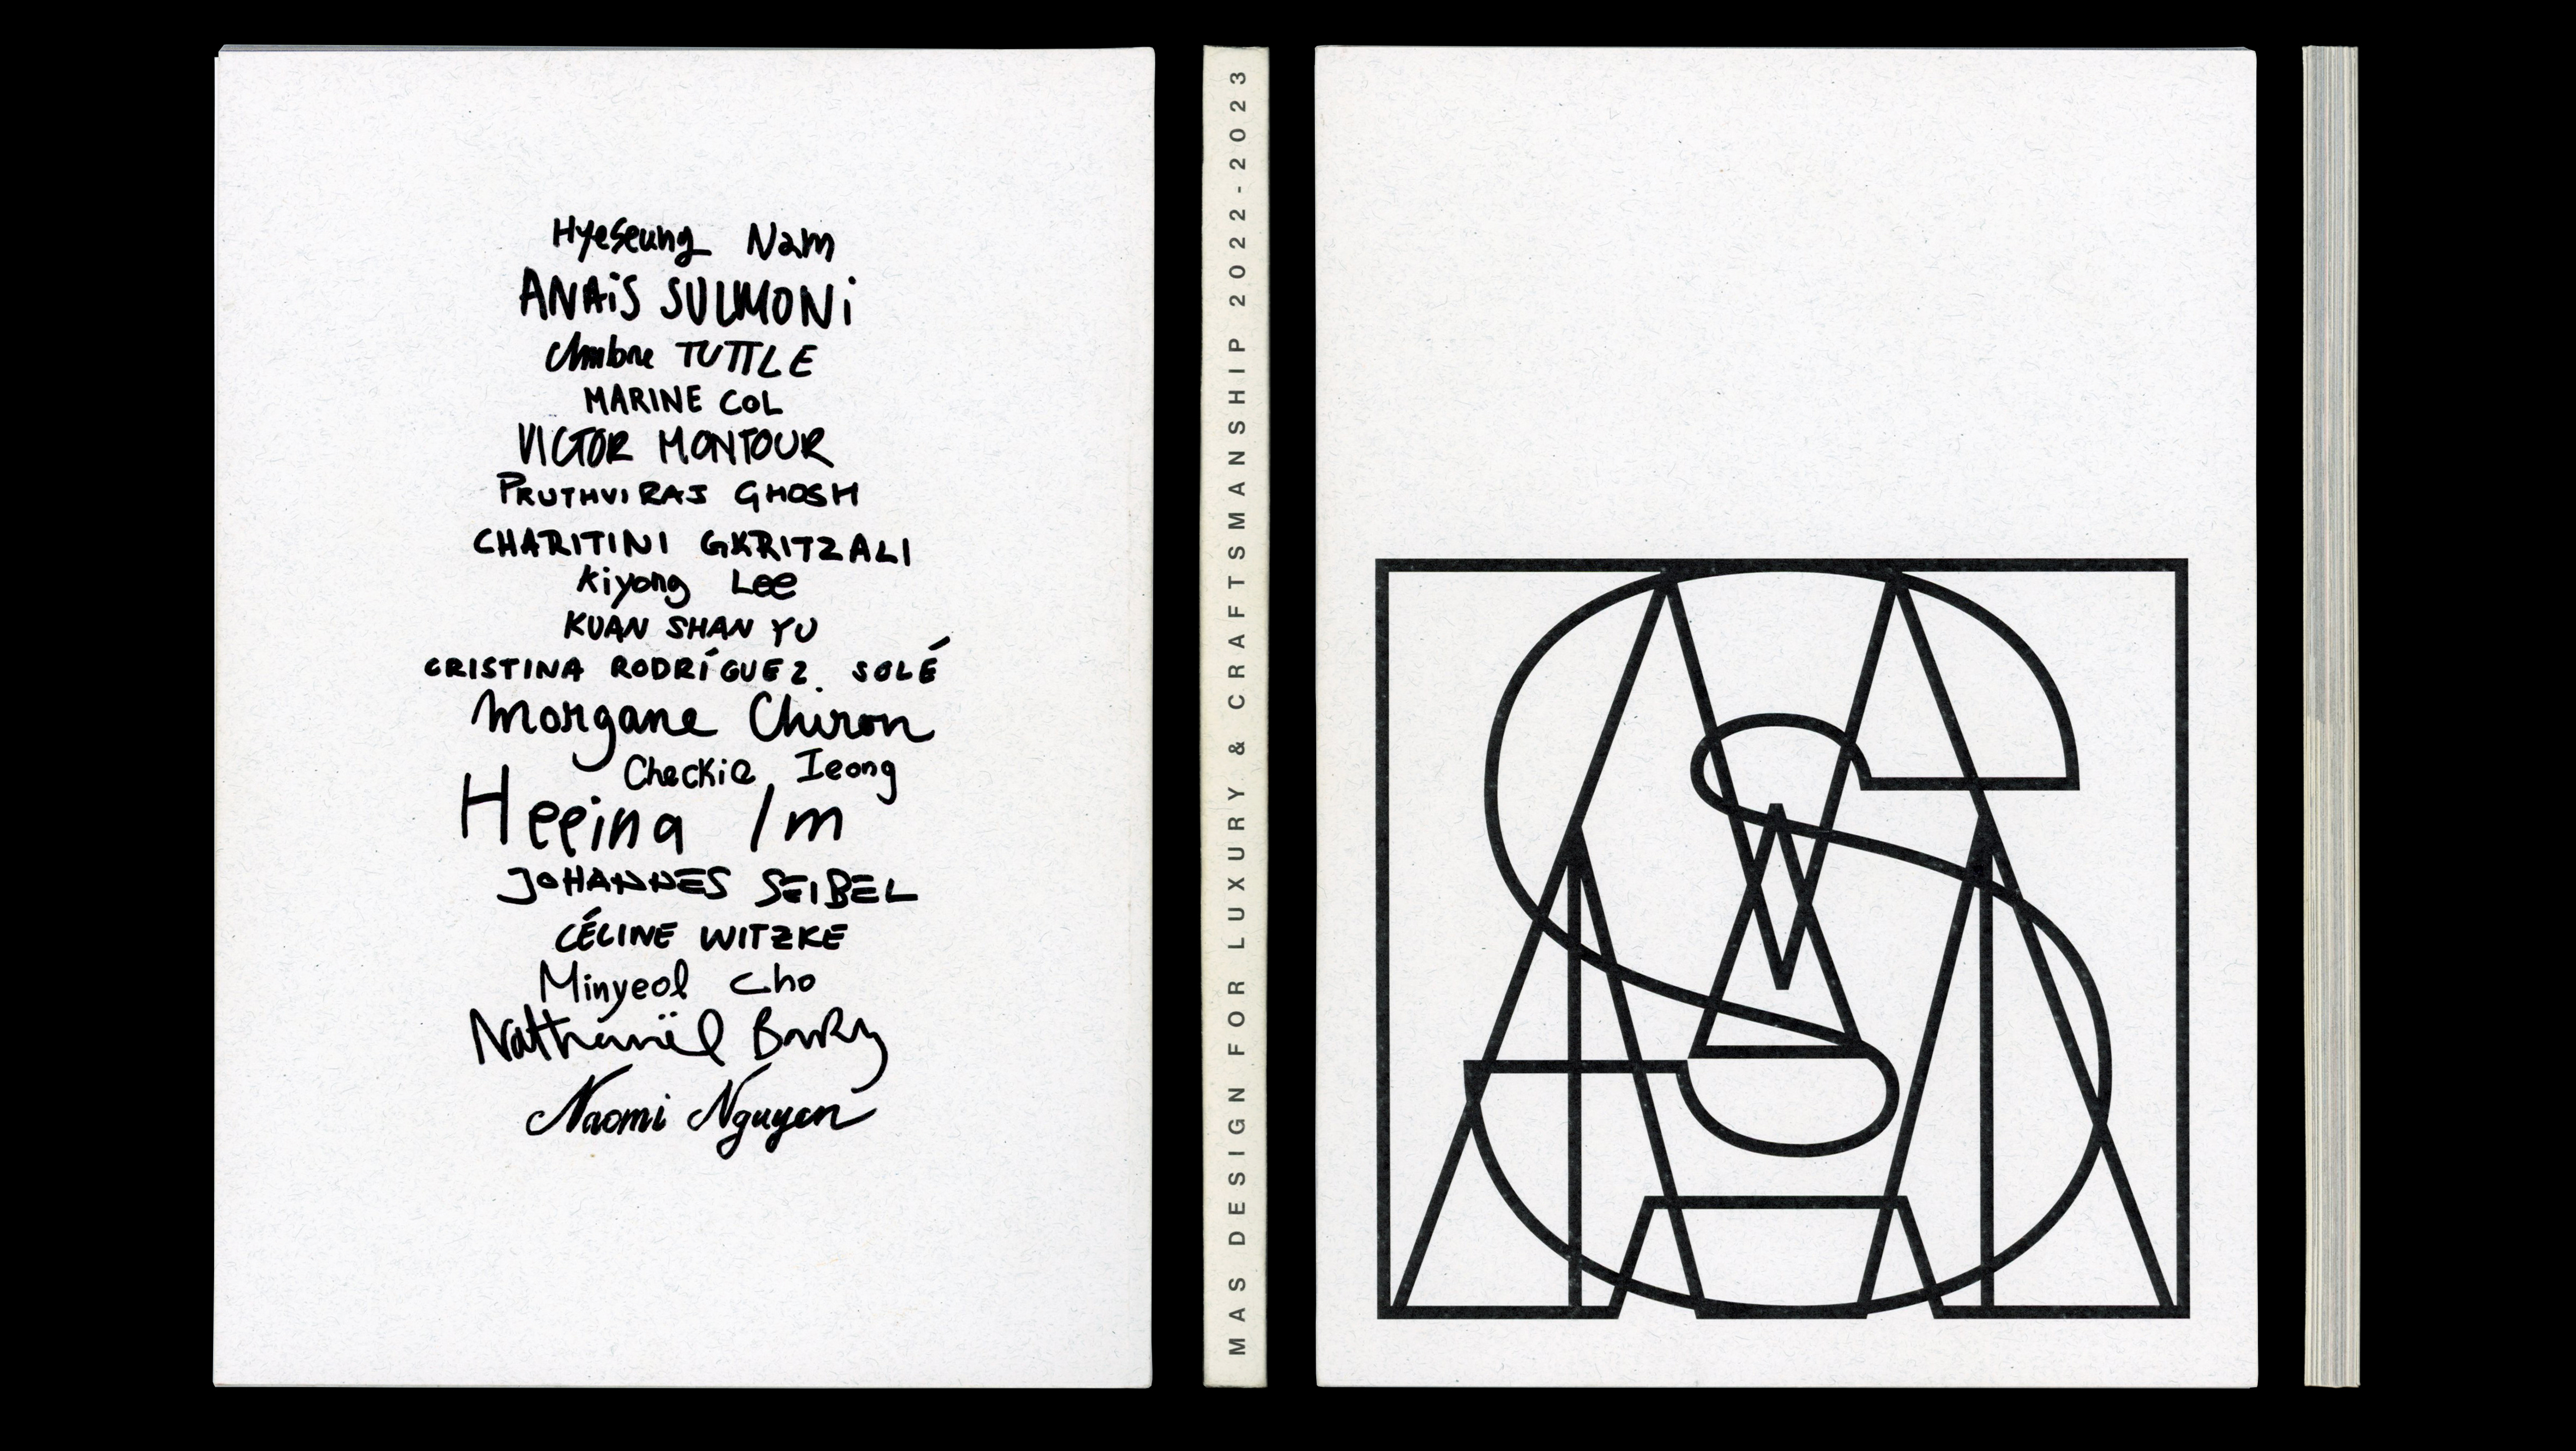 Hyeseung Nam
ANAïS SULMONi
Ambre TUTTLE
MARINE COL
VICTOR MONTOUR
PRUTHVIRAJ GHOSH
CHARITINI GKRITZALI
Kiyong Lee
KUAN SHAN YU
CRISTINA RODRÍGUEZ SOLÉ
Morgane Chiron
Checkie Ieong
Heejna Im
JOHANNES SEIBEL
CÉLINE WITZKE
Minyeol Cho
Nathanaël
Naomi Nguyen
MAS DESIGN FOR LUXURY & CRAFTSMANSHIP 2022-2023
MAS